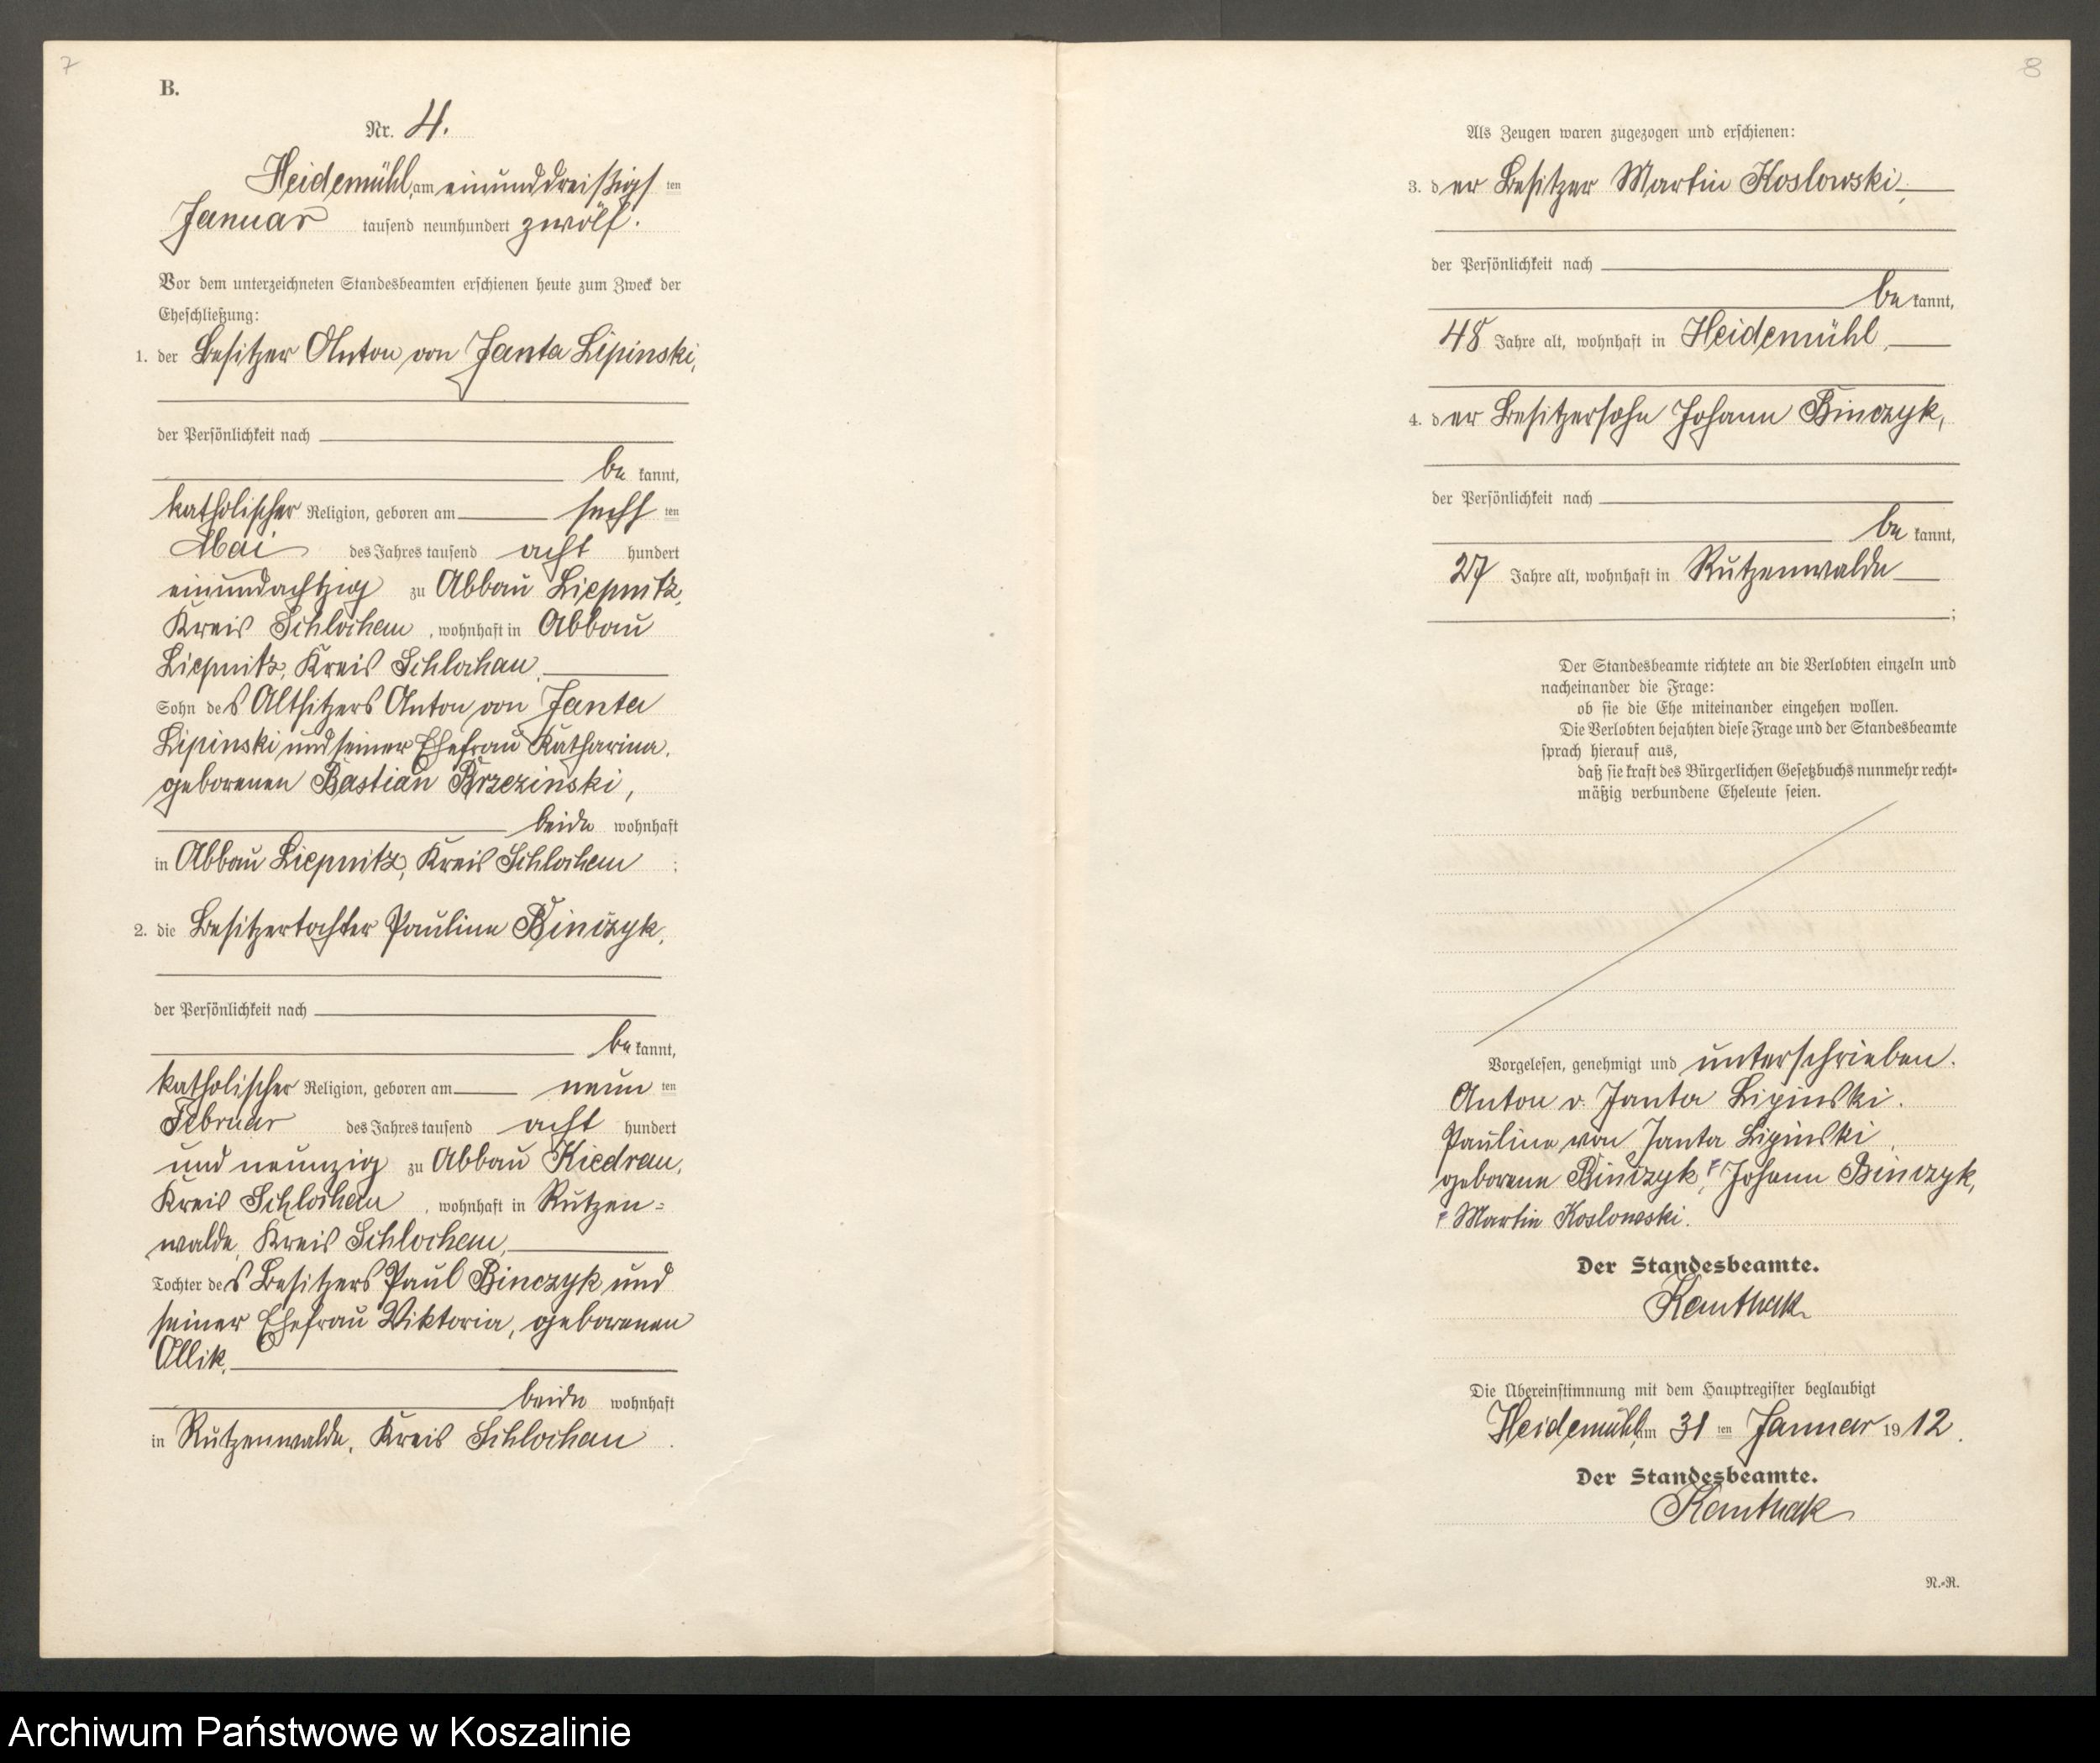 7
B.
Nr. 4.
Heidemühl, am einunddreißigsten
Januar tausend neunhundert zwölf.
Vor dem unterzeichneten Standesbeamten erschienen heute zum Zweck der
Eheschließung:
1. der Besitzer Anton von Janta Lipinski,
der Persönlichkeit nach
bekannt,
katholischer Religion, geboren am sechsten
Mai des Jahres tausend acht hundert
einundachtzig zu Abbau Liepnitz,
Kreis Schlochau, wohnhaft in Abbau
Liepnitz, Kreis Schlochau,
Sohn des Altsitzers Anton von Janta
Lipinski und seiner Ehefrau Katharina,
geborenen Bastian Brzezinski,
beide wohnhaft
in Abbau Liepnitz, Kreis Schlochau ;
2. die Besitzertochter Pauline Binczyk,
der Persönlichkeit nach
bekannt,
katholischer Religion, geboren am neunten
Februar des Jahres tausend acht hundert
und neunzig zu Abbau Kiedrau,
Kreis Schlochau, wohnhaft in Rutzen-
walde, Kreis Schlochau,
Tochter des Besitzers Paul Binczyk und
seiner Ehefrau Viktoria, geborenen
Ollik,
beide wohnhaft
in Rutzenwalde, Kreis Schlochau.
8
Als Zeugen waren zugezogen und erschienen:
3. der Besitzer Martin Koslowski,
der Persönlichkeit nach
bekannt,
48 Jahre alt, wohnhaft in Heidemühl,
4. der Besitzersohn Johann Binczyk,
der Persönlichkeit nach
bekannt,
27 Jahre alt, wohnhaft in Rutzenwalde
;
Der Standesbeamte richtete an die Verlobten einzeln und
nacheinander die Frage:
ob sie die Ehe miteinander eingehen wollen.
Die Verlobten bejahten diese Frage und der Standesbeamte
sprach hierauf aus,
daß sie kraft des Bürgerlichen Gesetzbuchs nunmehr recht-
mäßig verbundene Eheleute seien.
Vorgelesen, genehmigt und unterschrieben.
Anton v. Janta Lipinski.
Pauline von Janta Lipinski,
geborene Binczyk, Johann Binczyk,
Martin Koslowski.
Der Standesbeamte.
Die Übereinstimmung mit dem Hauptregister beglaubigt
Heidemühl, am 31 ten Januar 1912.
Der Standesbeamte.
N.-R.
Archiwum Państwowe w Koszalinie